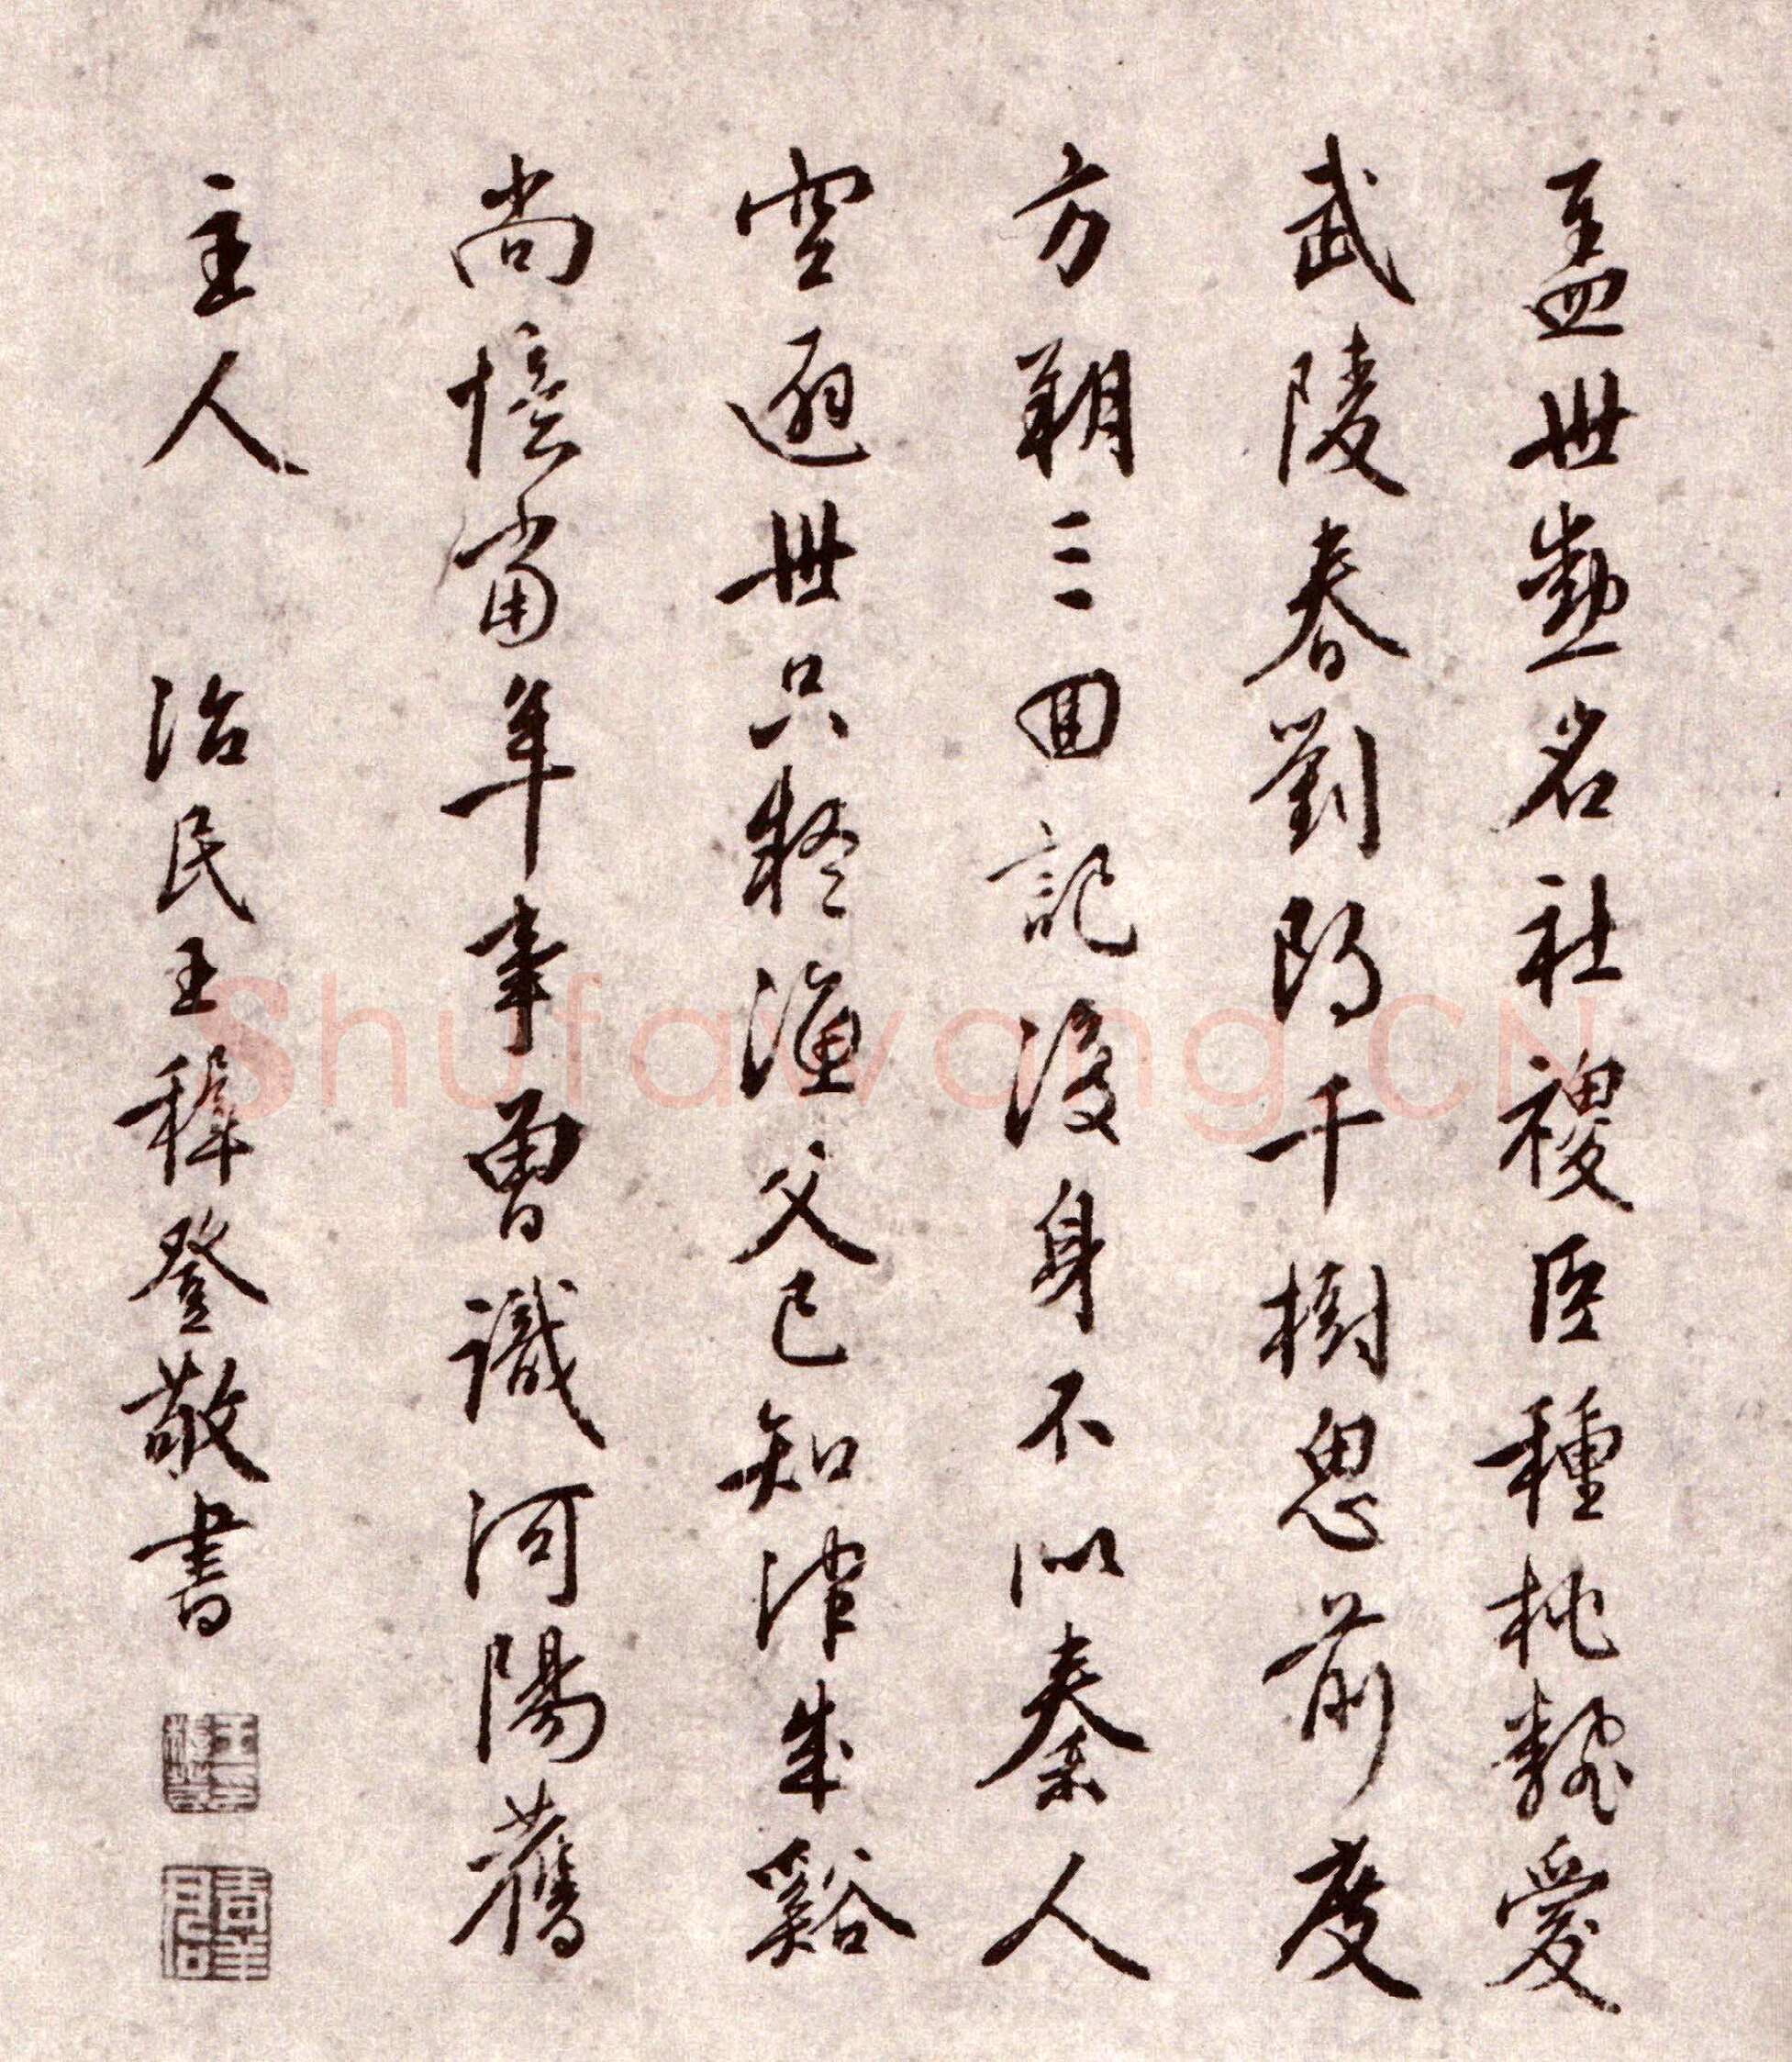 盖世勳名社稷臣種桃偏愛
武陵春劉郎千樹思前度
方朔三回記後身不似秦人
空避世只疑漁父已知津成谿
尚憶當年事曾識河陽舊
主人 治民王穉登敬書
Shufawang.CN